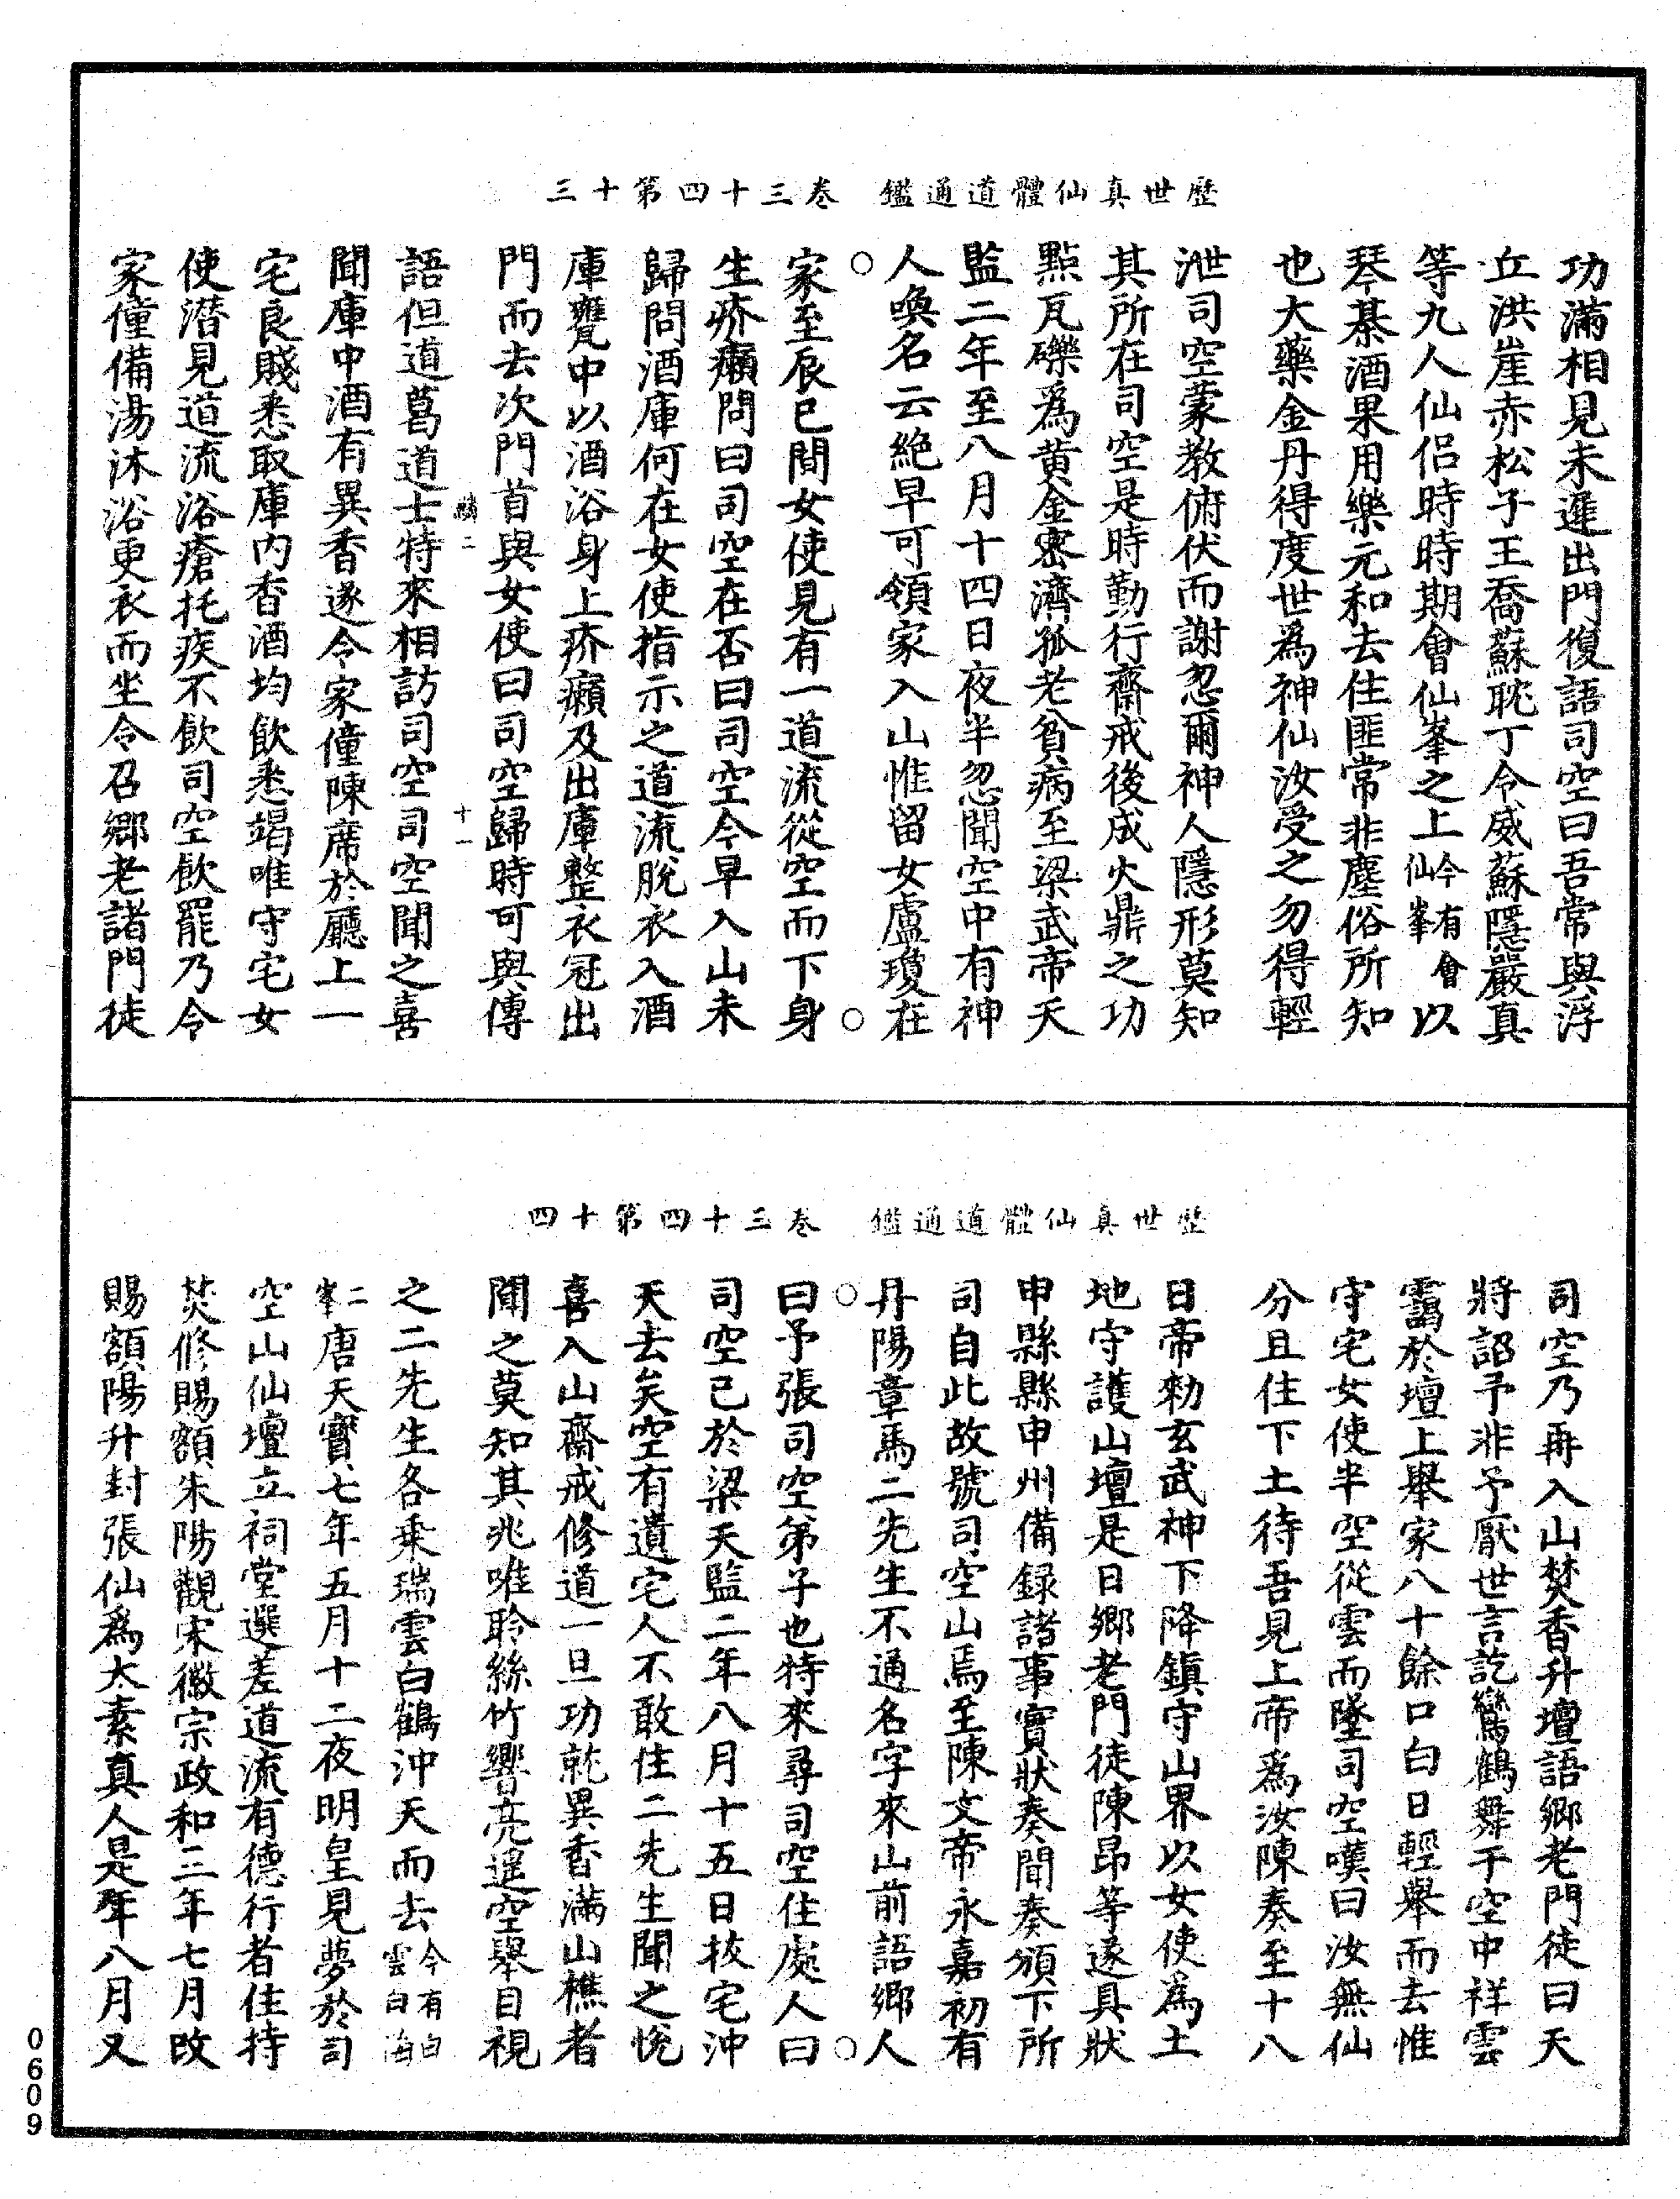 歷世真仙體道通鑑　卷三十四第十三
功滿相見未進出門復語司空曰吾常與浮
丘洪崖赤松子王喬蘇耽丁令威蘇隱嚴真
等九人仙侶時時期會仙峯之上今有會仙峯以
琴棊酒果用樂元和去住匪常非塵俗所知
也大藥金丹得度世為神仙汝受之勿得輕
泄司空蒙教俯伏而謝忽爾神人隱形莫知
其所在司空是時勤行齋戒後成火鼎之功
點瓦礫爲黃金密濟孤老貧病至梁武帝天
監二年至八月十四日夜半忽聞空中有神
人喚名云絶早可領家入山惟留女盧瓊在
家至辰巳間女使見有一道流從空而下身
生疥癩問曰司空在否曰司空今早入山未
歸問酒庫何在女使指示之道流脫衣入酒
庫甕中以酒浴身上疥癩及出庫整衣冠出
門而去次門首與女使曰司空歸時可與傳
語但道葛道士特來相訪司空司空聞之喜
聞庫中酒有異香遂令家僮陳席於廳上一
宅良賤悉取庫內香酒均飲悉竭唯守宅女
使潛見道流浴瘡托疾不飲司空飲罷乃令
家僮備湯沐浴更衣而坐令召鄉老諸門徒
二
十一
歷世真仙體道通鑑　卷三十四第十四
司空乃再入山焚香升壇語鄉老門徒曰天
將詔予非予厭世言訖鸞鶴舞于空中祥雲
靄於壇上舉家八十餘口白日輕舉而去惟
守宅女使半空從雲而墜司空嘆曰汝無仙
分且住下土待吾見上帝爲汝陳奏至十八
日帝勑玄武神下降鎮守山界以女使爲土
地守護山壇是日鄉老門徒陳昂等遂具狀
申縣縣申州備録諸事實狀奏聞奏頒下所
司自此故號司空山焉至陳文帝永嘉初有
丹陽章馬二先生不通名字來山前語鄉人
曰予張司空弟子也特來尋司空住處人曰
司空已於梁天監二年八月十五日拔宅沖
天去矣空有遺宅人不敢住二先生聞之悅
喜入山齋戒修道一旦功就異香滿山樵者
聞之莫知其兆唯聆絲竹響亮遥空舉目視
之二先生各乘瑞雲白鶴沖天而去今有白雲白海
二峯唐天寶七年五月十二夜明皇見夢於司
空山仙壇立祠堂選差道流有德行者住持
焚修賜額朱陽觀宋徽宗政和三年七月改
賜額陽升封張仙爲太素真人是年八月又
0609